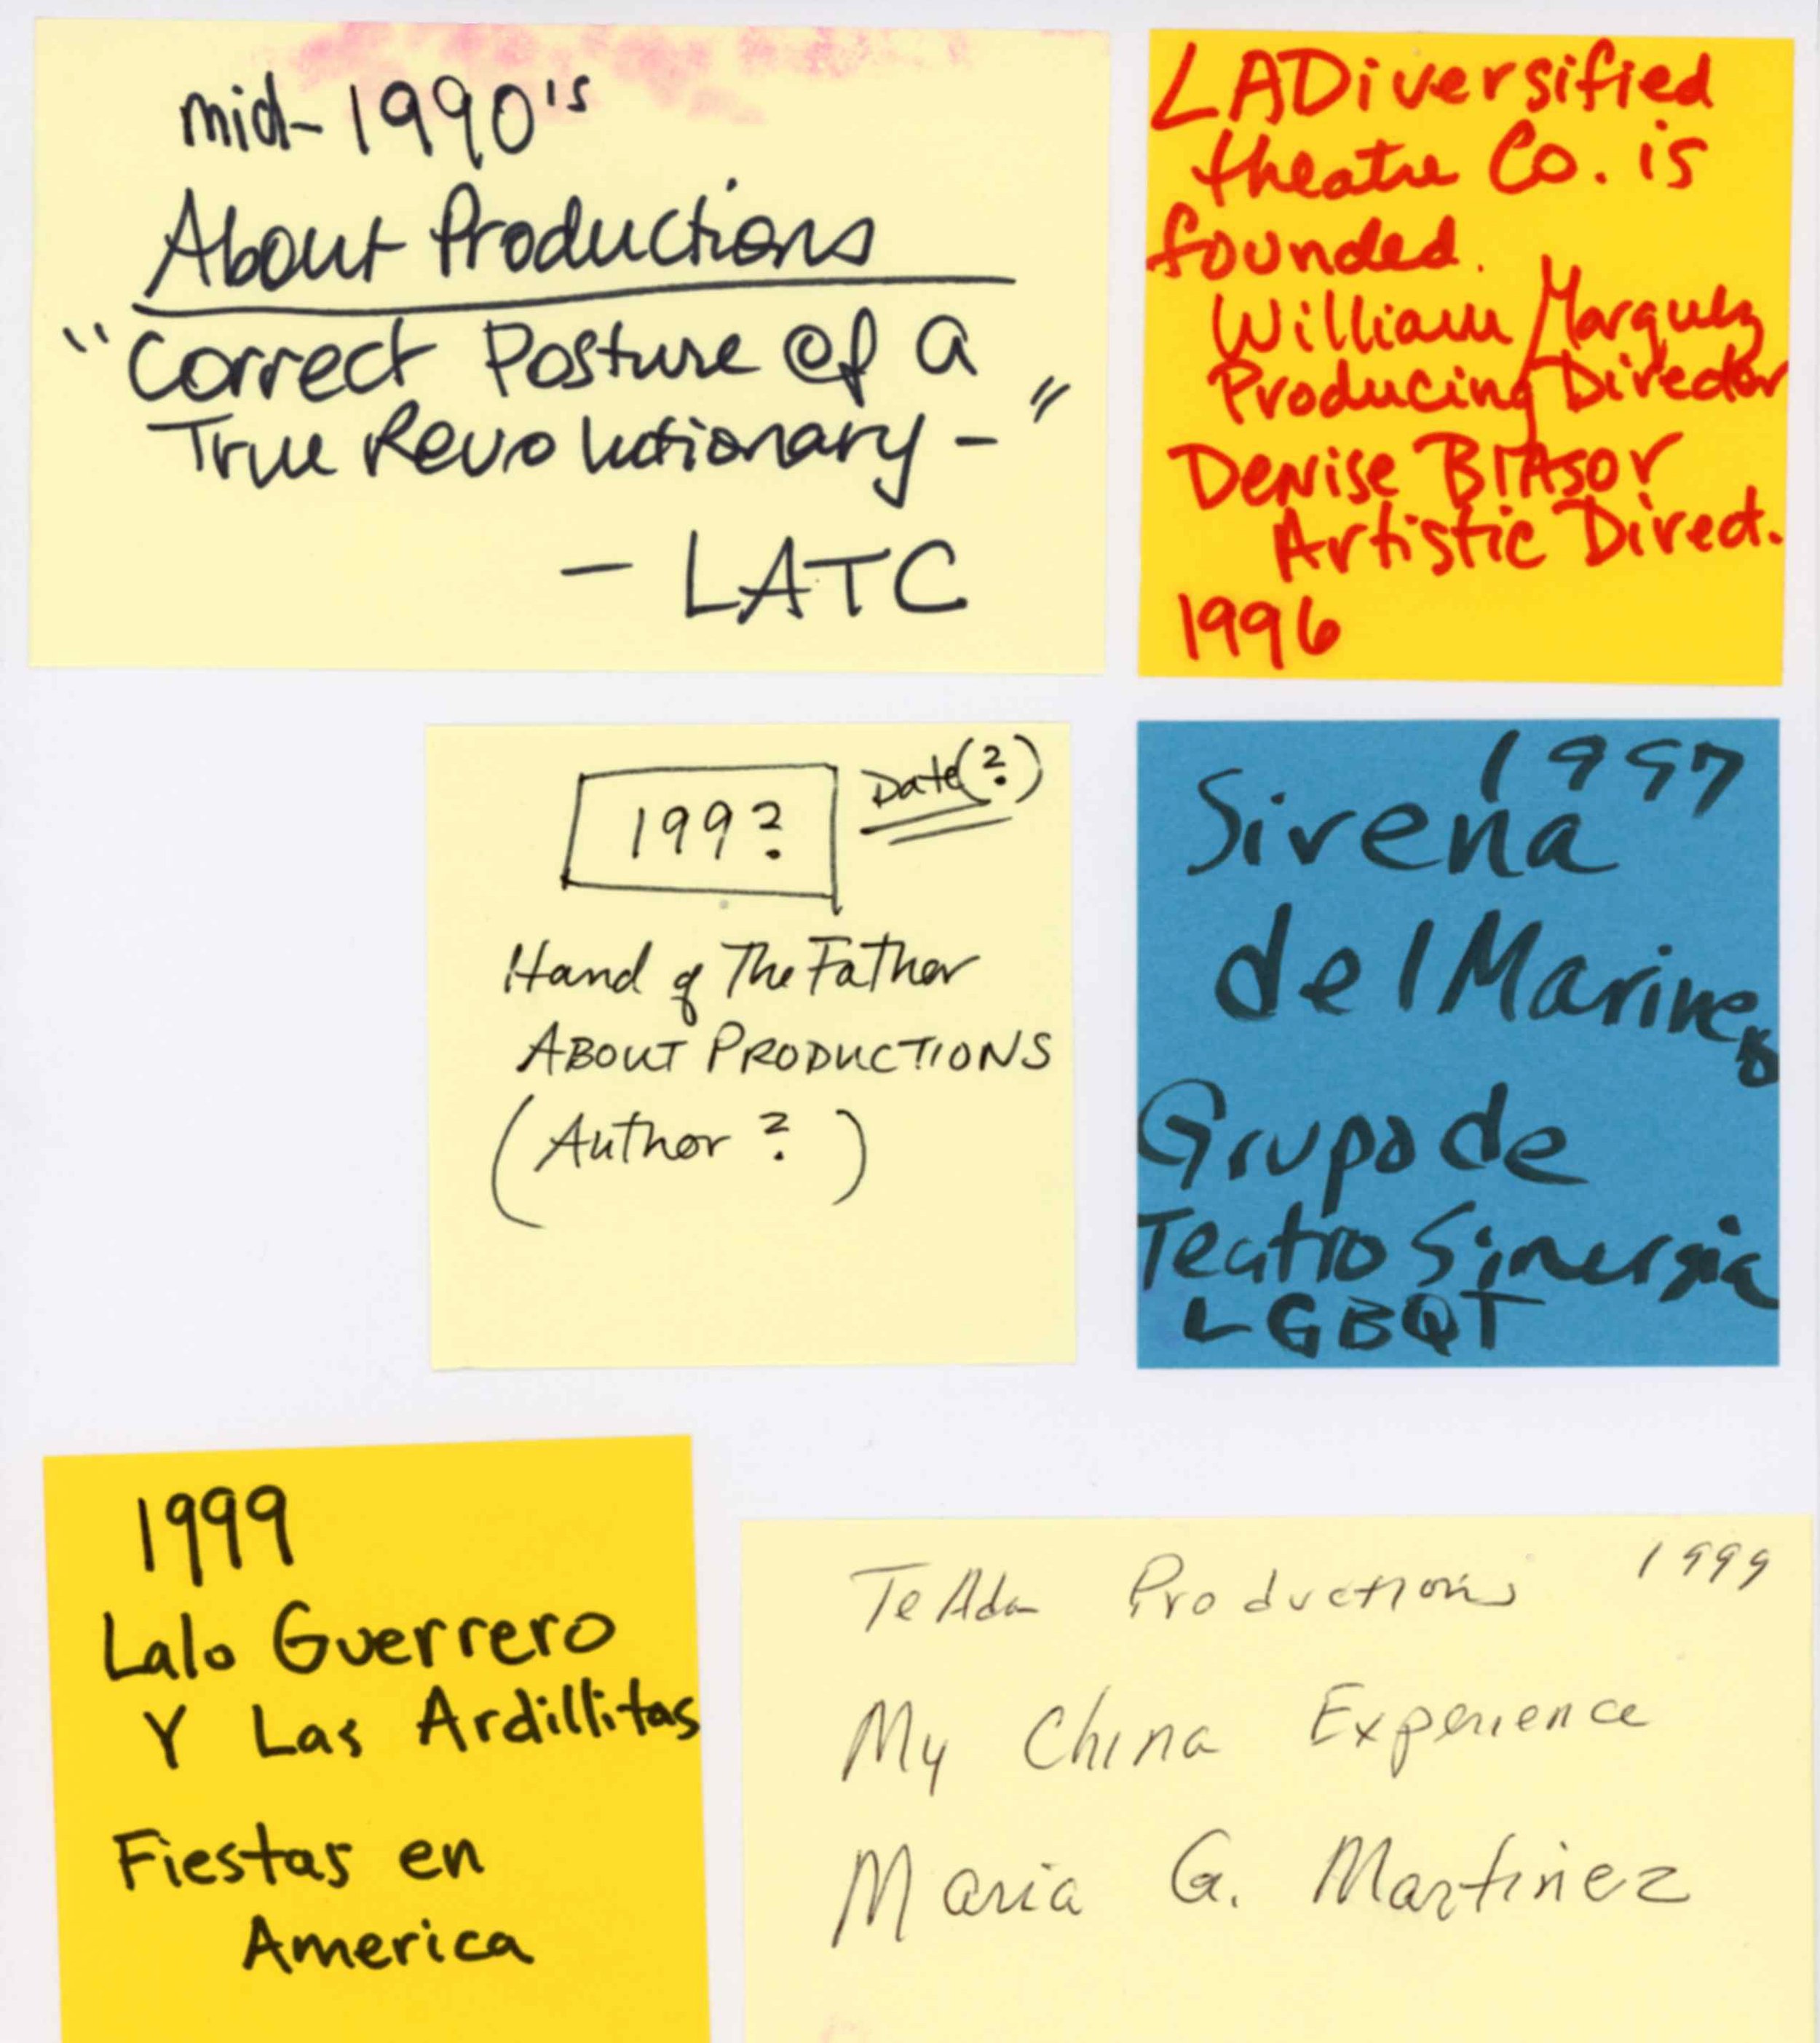 mid-1990's
About Productions
"Correct Posture of a
True Revolutionary-"
- LATC
LADiversified
theatre Co. is
founded.
William Marquez
Producing Director
Denise Blasor
Artistic Direct.
1996
199?
Date(?)
Hand of The Father
ABOUT PRODUCTIONS
(Author ?)
1997
Sirena
del Marinero
Grupo de
Teatro Sinergia
LGBQT
1999
Lalo Guerrero
Y Las Ardillitas
Fiestas en
America
TeAda Productions 1999
My China Experience
Maria G. Martinez